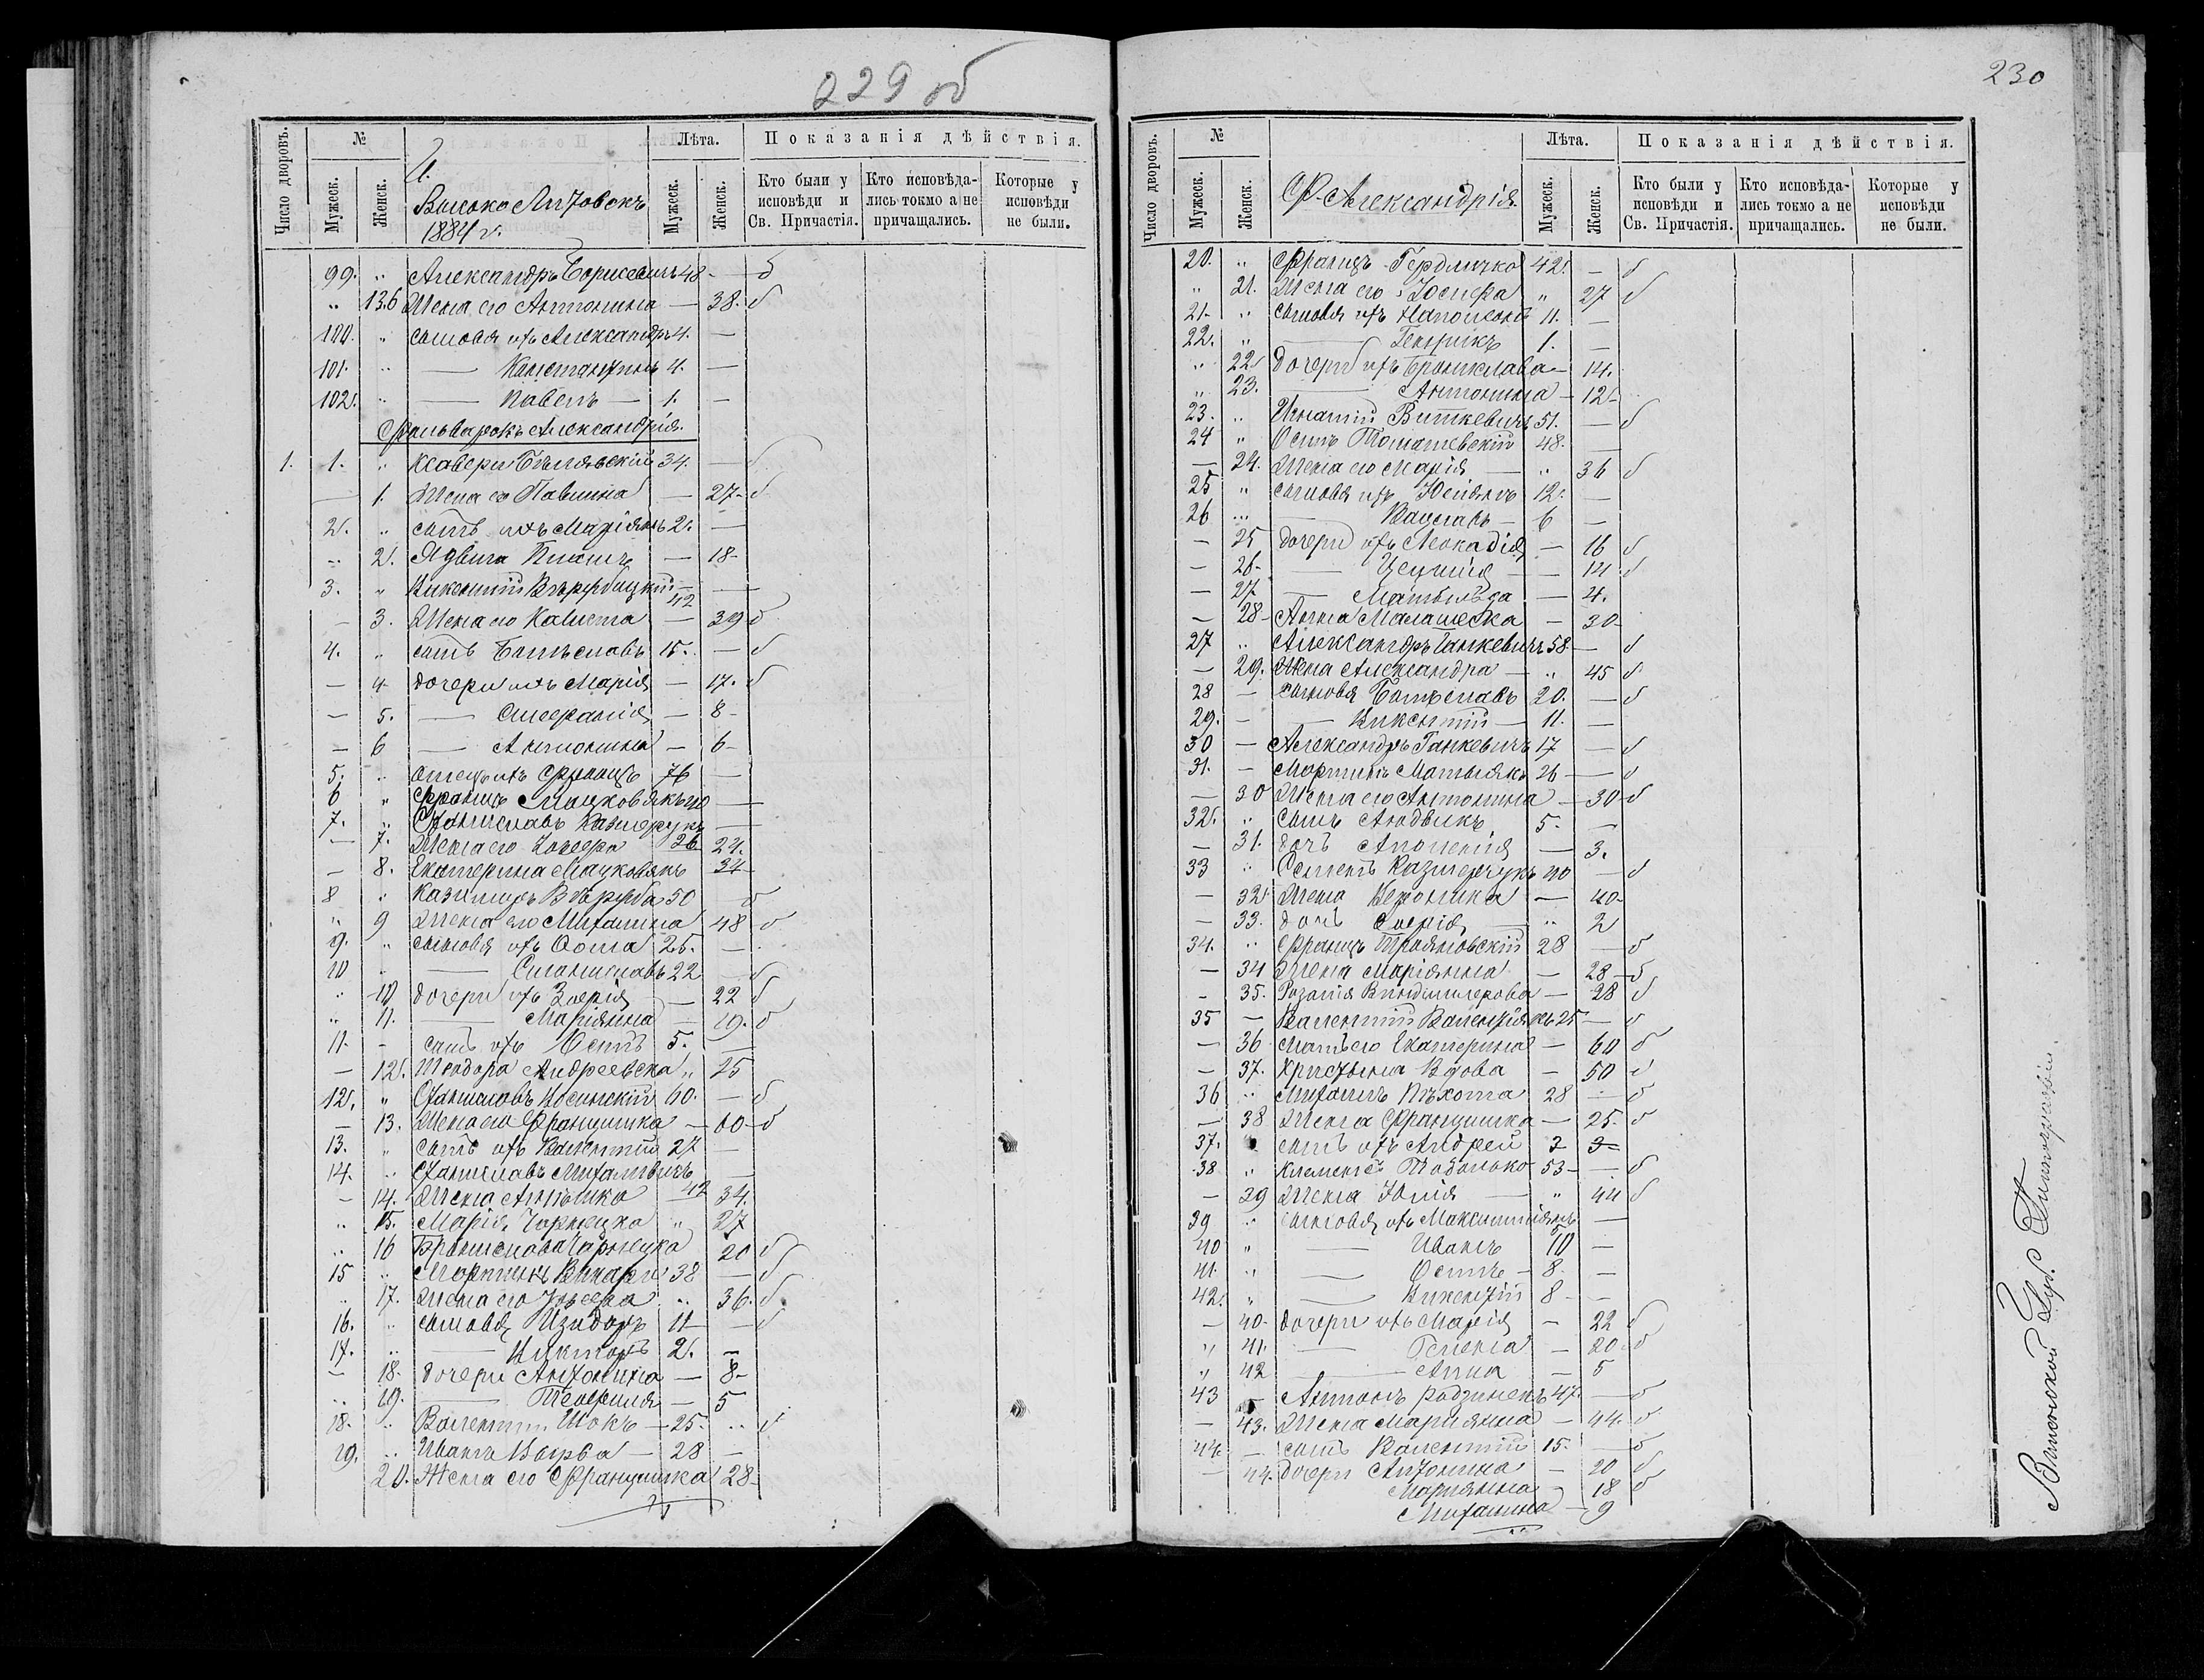 229 об
Число дворовъ.
№
Мужеск.
Женск.
Высоко Литовскъ
1884 г.
Лѣта.
Мужеск.
Женск.
Показанія дѣйствія.
Кто были у исповѣди и Св. Причастія.
Кто исповѣда-лись токмо а не причащались.
Которые у исповѣди не были.
99. " Александръ Борисевичъ 48 - б
" 136 Жена его Антонина — 38. б
100. " сыновя ихъ Александръ 4. —
101. " — Константинъ 4. —
102. " — Павелъ — 1. —
Фольварокъ Александрія.
1. 1. " Ксаверы 34. — б
— 1. Жена его Павлина — 27 - б
2. " сынъ ихъ Маріянъ 2. —
" 2. Ядвига — 18 -
3. " Викентій —
42
— 3. Жена его Калиста — 39 б
4. " сынъ Болеславъ 15. — б
— 4 дочери ихъ Марія — 17. б
— 5. — Стефанія — 8 -
— 6 — Антонина — 6 -
5. " отецъ ихъ Францъ 76 —
6 " Францъ Мацковякъ 40 —
7. " Станиславъ Казмерукъ —
— 7. Жена его Юзефа 26 24.
— 8. Екатерина Мацковякъ 34 -
8 " Казимиръ 50 б
" 9 Жена его Михалина 48 б
9. " сыновя ихъ Ѳома 25. —
10 " — Станиславъ 22 — б
" 10 дочери ихъ Зофія — 22 б
" 11. — Маріянна — 19. б
11. - сынъ ихъ Осипъ 5. —
— 12. Теодора Андреевска " 25
12. " Станиславъ 60. — б
— 13. Жена его Францишка — 60 - б
13. " сынъ ихъ Валентій 27 —
14. " Станиславъ —
— 14. Жена 42 34
" 15. Марія Чарнецка " 27
" 16 Бронислава Чарнецка 20 б
15 " Мартинъ 38 — б
" 17. Жена его Юзефа " 36. б
16. " сыновя Изидоръ 11 — б
17. " — Викторъ 2. —
— 18. дочери Антонина — 8 -
" 19. — Теофилія — 5
18. " Валентій — 25. " б
19. " Иванъ Вырва — 28 —
20. Жена его Францишка 28 -
230
Число дворовъ.
№
Мужеск.
Женск.
Ф. Александрія.
Лѣта.
Мужеск.
Женск.
Показанія дѣйствія.
Кто были у исповѣди и Св. Причастія.
Кто исповѣда-лись токмо а не причащались.
Которые у исповѣди не были.
20. " Францъ 42. — б
" 21. Жена его Юзефа " 27 б
21. " сыновя ихъ Наполеонъ 11. —
22. " — Генрикъ 1. —
" 22 дочери ихъ Бронислава — 14.
" 23. Антонина — 12 -
23. " Игнатій Виткевичъ 51. — б
24 " Осипъ Томашевскій 48. —
— 24. Жена его Марія — " 36 б
25 " сыновя ихъ Юліянъ 12. —
26 " Вацлавъ — 6 —
— 25 дочери ихъ Леокадія — 16 б
— 26 - — — 14 б
— 27 — Матыльда — 4.
— 28 - Анна — 30 -
27 " Александръ Ганкевичъ 58 — б
— 29. Жена Александра — " 45 б
28 — сыновя Болеславъ 20. — б
29. — — Викентій — 11. —
30 — Александръ Ганкевичъ 17 — б
31. — Мартинъ Матыякъ 26 — б
— 30 Жена его Антонина — 30 - б
32. " сынъ Людвикъ 5. —
— 31. дочь Аполенія — 3.
33 " Казмерчукъ 40 — б
— 32 Жена Вероника — 40 -
— 33. дочь Зофія — " 2
34. " Францъ Трояновскій 28 — б
— 34 Жена Маріянна — 28 — б
— 35. Розалія — 28 б
35 — Валентій 25 — б
— 36 мать его Екатерина — 60 б
— 37. Христына Вдова — 50 б
36 " Михаилъ Пѣхота 28 — б
— 38 Жена Францишка — 25. б
37. сынъ ихъ Андрей 3
38 " Климентъ 53 - — б
— 39 Жена Юлія — " 44 б
39 " сыновя ихъ Максимиліянъ —
40 " — Иванъ 10 —
41. " — Осипъ — 8. —
42. " — Викентій 8 - —
— 40 - дочери ихъ Марія — 22 б
" 41. — Гелена — 20 б
" 42 — Анна — 5
43 — Антонъ 47 — б
— 43. Жена Маріянна — 44. б
44. — сынъ Валентій 15. — б
— 44. дочери Антонина — 20 б
Маріянна — 18 б
Михалина — 9
Виленской Губ. Типографіи.